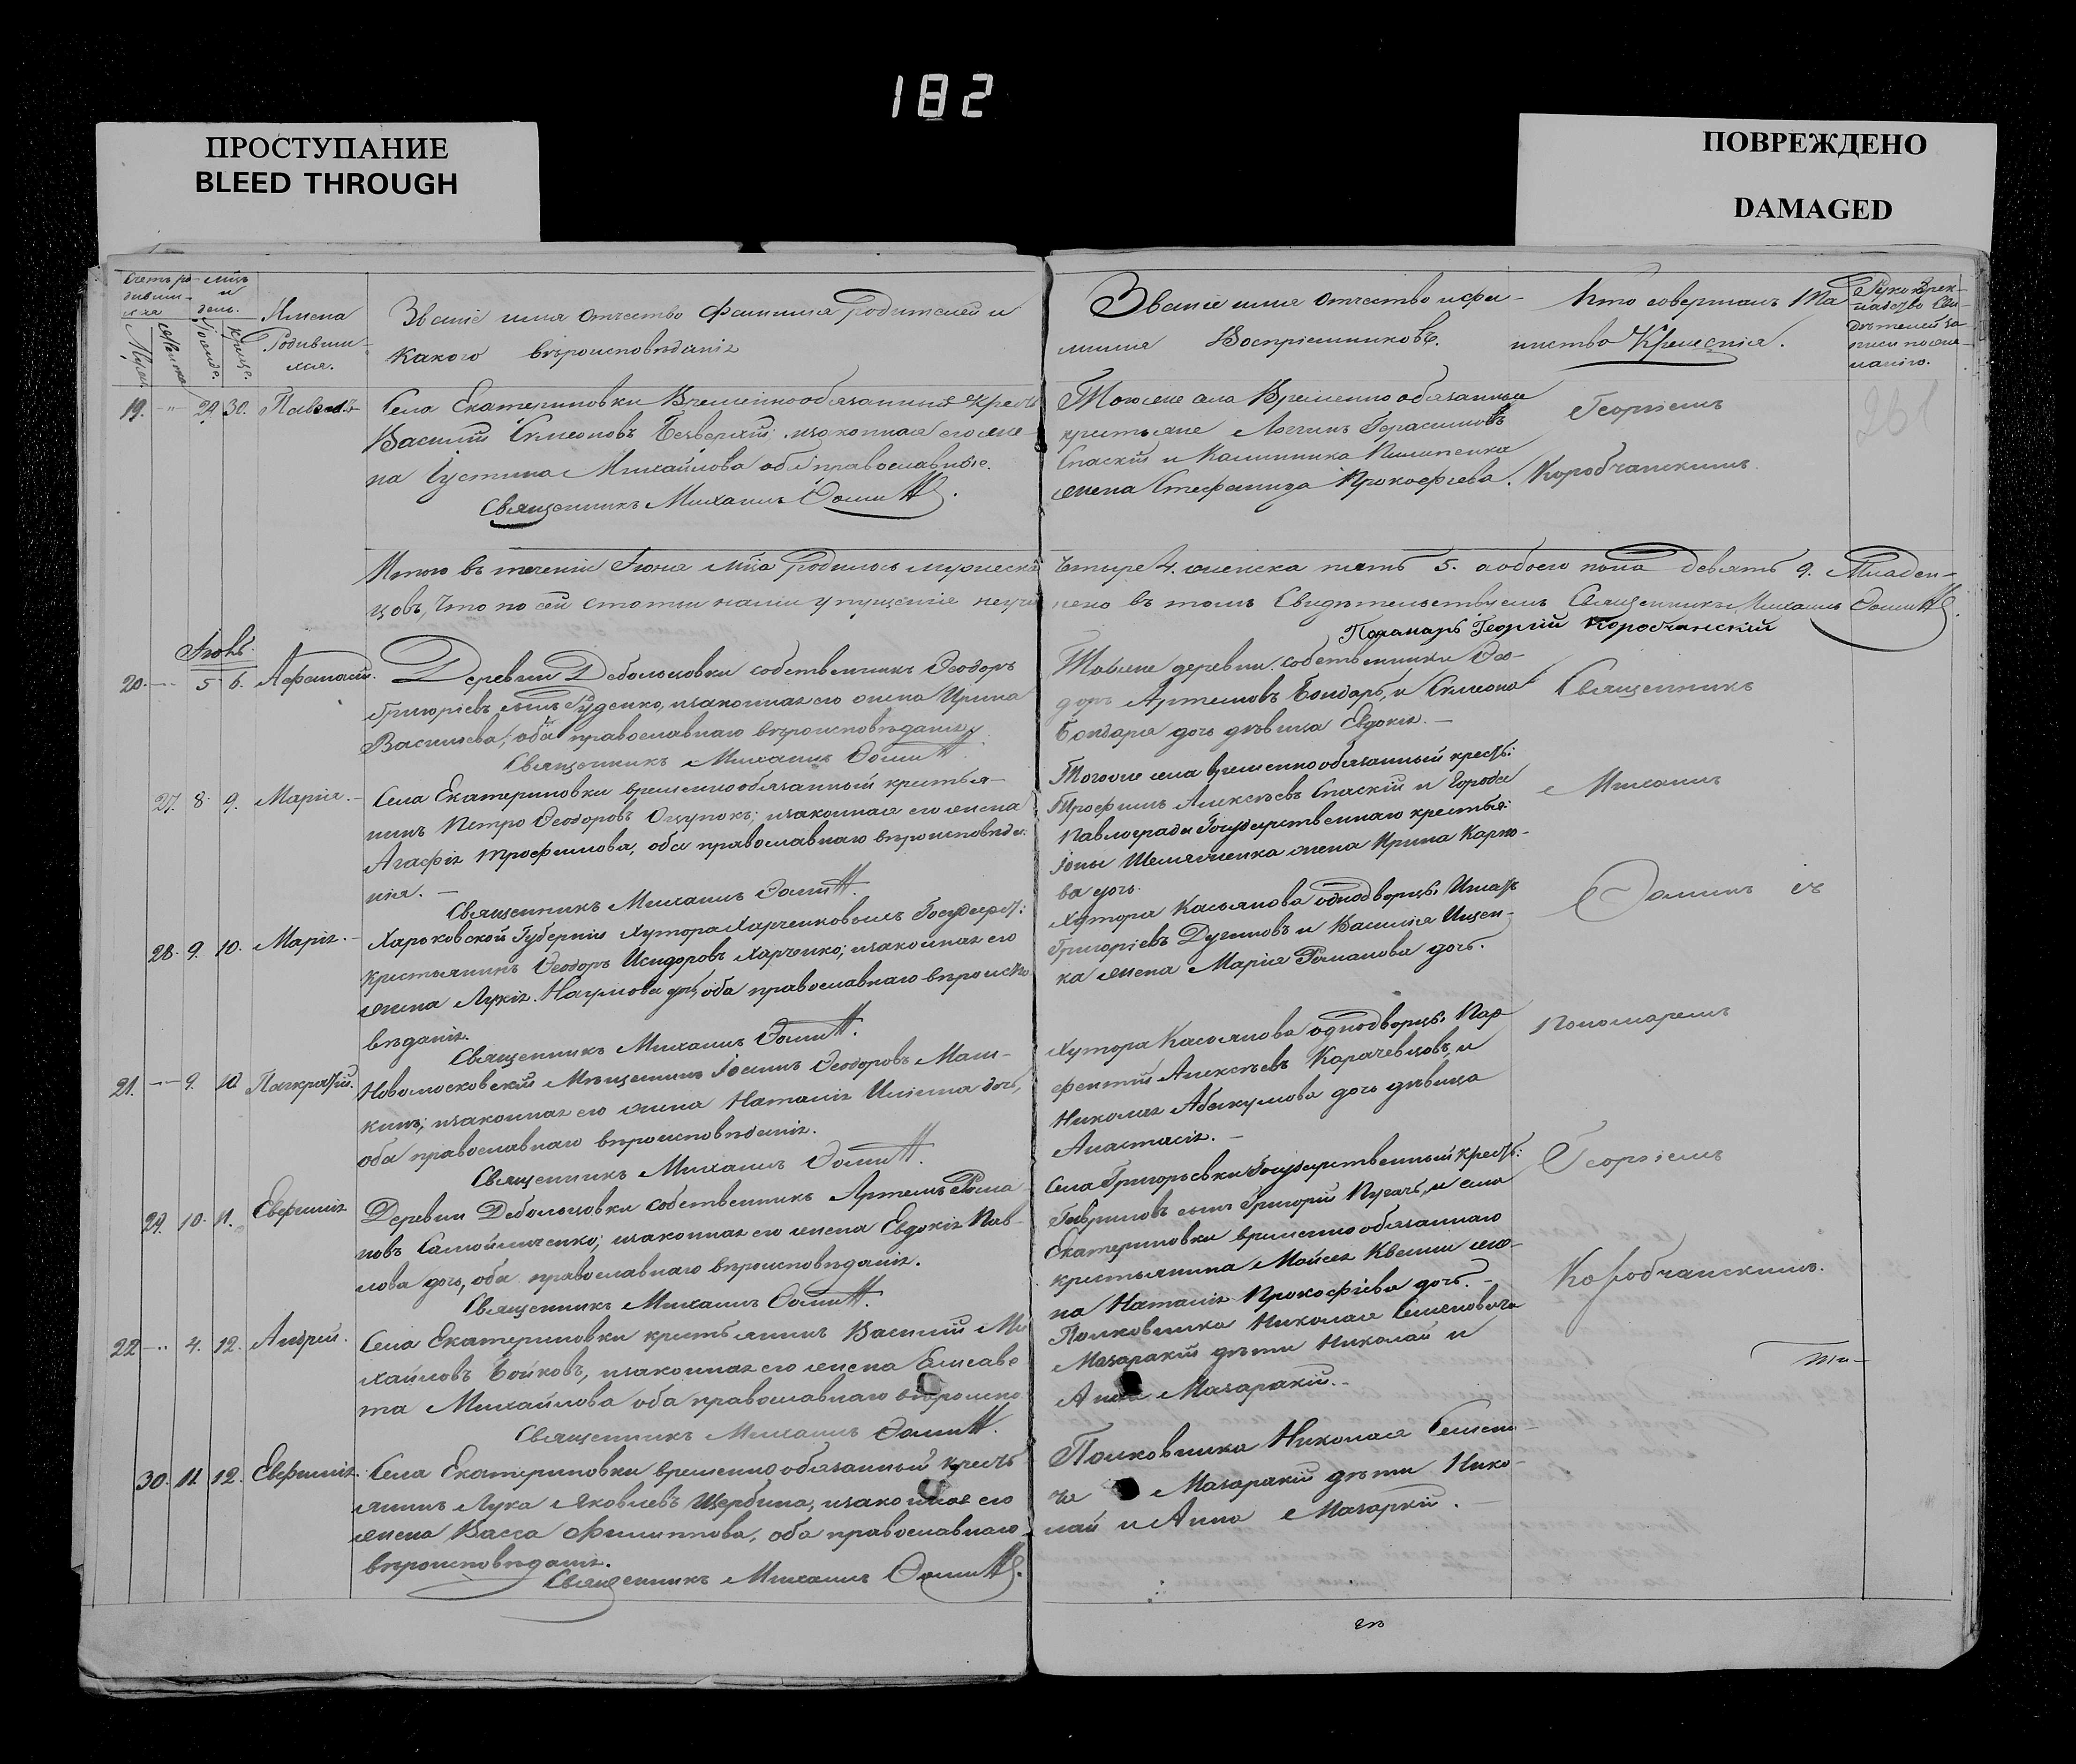 182
ПРОСТУПАНИЕ
BLEED THROUGH
ПОВРЕЖДЕНО
DAMAGED
Счетъ ро- мѣць
дивши- и
ихся день.
Имена
Родивши-
хся.
Званіе имя отчество фамилія родителей и
какого вѣроисповѣданія
Званіе имя отчество и фа-
милія Воспріемниковъ.
Кто совершалъ Та
инство Крещенія.
19. 29. 30. Павелъ
Села Екатериновки Временнообязанный крест
Василій Симеоновъ Безверхій; изаконная его же-
на Густина Михайлова оба православные.
Священникъ Михаилъ Ѳоминъ.
Тогоже села Временно обязанные
крестьяне Логгинъ Герасимовъ
Спаскій и Калинника Пилипенка
жена Стефанида Прокофіева.
Георгіемъ
Коробчанскимъ
261
Итого въ теченіи Іюня мѣца родилось мужеска
цовъ, Что по сей статьи нами упущенія неучи
четыре 4. женска пять 5. а обоего пола девять 9. Младен-
нено въ томъ Свидѣтельствуемъ Священникъ Михаилъ Ѳоминъ.
Понамарь Георгій Коробчанскій
Іюль.
20. 5 6. Афанасій.
Деревни Дебольцовки собственникъ Ѳеодоръ
Григоріевъ сынъ Руденко, изаконная его жена Ирина
Васильева, оба православнаго вѣроисповѣданія
Священникъ Михаилъ Ѳоминъ.
Тойже деревни собственники Ѳео-
доръ Артемовъ Бондарь, и Симеона
Бондаря дочь дѣвица Евдокія. —
Священникъ
27. 8. 9. Марія. —
Села Екатериновки временнообязанный крестья-
нинъ Петро Ѳеодоровъ Ощупокъ; изаконная его жена
Агафія Трофимова, оба православнаго вѣроисповѣда:
нія. —
Священникъ Михаилъ Ѳоминъ.
Тогоже села временнообязанный крест:
Трофимъ Алексѣевъ Спаскій и Города
Павлограда Государственнаго крестья:
Іоны жена Ирина Карпо-
ва дочь.
Михаилъ
28. 9. 10. Марія. —
Харковской Губерніи Хутора Харченковомъ Государст:
крестьянинъ Ѳеодоръ Исидоровъ Харченко; изаконная его
жена Лукія Наумова дчь, оба православнаго вѣроиспо
вѣданія.
Священникъ Михаилъ Ѳоминъ.
Хутора Касьянова однодворцъ
Григоріевъ Дугиновъ и Василія Ищен-
ка жена Марія Романова дочь.
Ѳоминъ съ
21. 9. 10 Панкратій.
Новомосковскій Мѣщанинъ Іоаннъ Ѳеодоровъ Маш-
кинъ; изаконная его жена Наталія Иліина дочь,
оба православнаго вѣроисповѣданія.
Священникъ Михаилъ Ѳоминъ.
Хутора Касьянова однодворцъ Пар
фентій Алексѣевъ Карачевцовъ, и
Николая Абакумова дочь дѣвица
Анастасія. —
Пономаремъ
29. 10. 11. Евфимія
Деревни Дебольцовки собственникъ Артемъ Рома
новъ Самойличенко; изаконная его жена Евдокія Пав-
лова дочь, оба православнаго вѣроисповѣданія.
Священникъ Михаилъ Ѳоминъ.
Села Григорьевки Государственный крест:
Гавриловъ сынъ Григорій Пугачъ, и села
Екатериновки временно обязаннаго
крестьянина Мойсея Квеши же-
на Наталія Прокофіева дочь. —
Георгіемъ
22 4. 12. Андрей.
Села Екатериновки крестьянинъ Василій Ми
хайловъ Бойковъ, изаконная его жена Елисаве
та Михайлова оба православнаго вѣроиспо
Священникъ Михаилъ Ѳоминъ.
Полковника Николая Семеновича
Мазаракій дѣти Николай и
Анна Мазаракій. —
Коробчанскимъ.
30. 11. 12. Евфимія.
Села Екатериновки временно обязанный крестъ
янинъ Лука Яковлевъ Щербина, изаконная его
жена Васса Филиппова, оба православнаго
вѣроисповѣданія.
Священникъ Михаилъ Ѳоминъ.
Полковника Николая Семено-
ча Мазаракій дѣти Нико-
лай и Анна Мазаркій. —